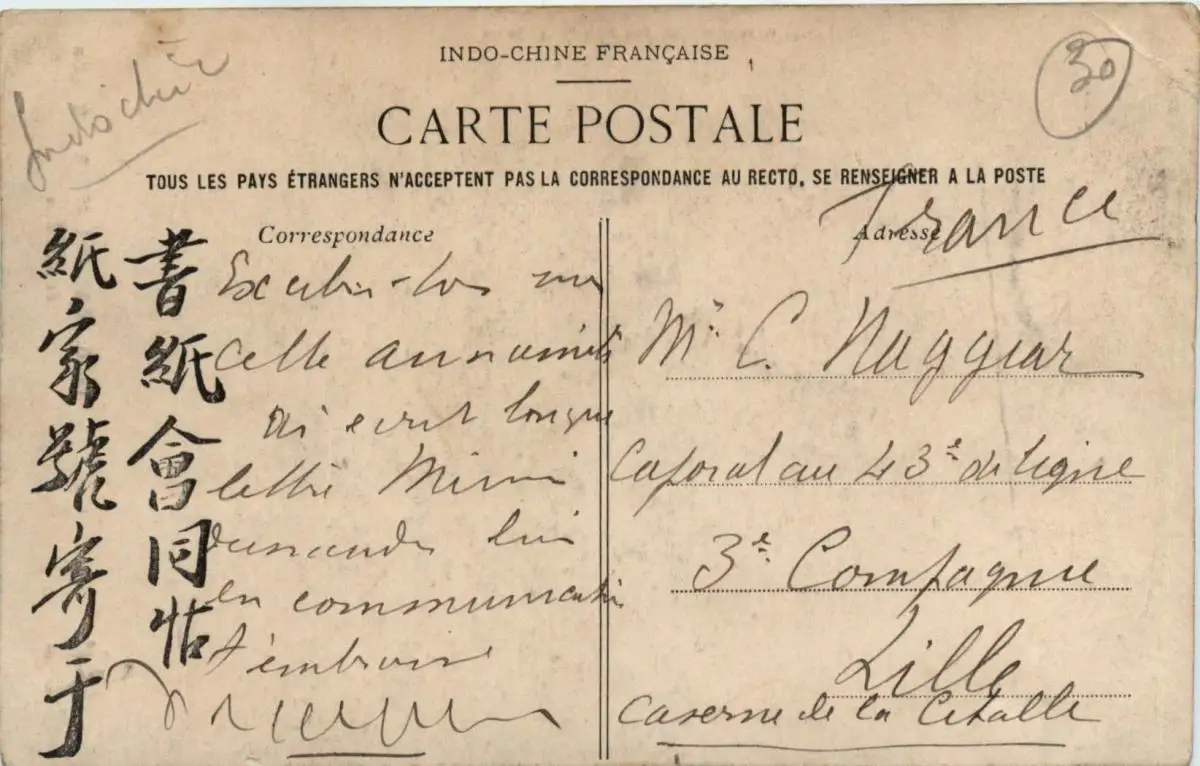 INDO-CHINE FRANÇAISE
Indochine
30
CARTE POSTALE
TOUS LES PAYS ÉTRANGERS N'ACCEPTENT PAS LA CORRESPONDANCE AU RECTO, SE RENSEIGNER A LA POSTE
Correspondance
cette
ai écrit longue
lettre Mimi
en
t'embrasse
書紙會同帖
紙家號寄于
Adresse
France
Mr C. Naggiar
Caporal au 43e de ligne
3e Compagnie
Lille
Caserne de la Citadelle